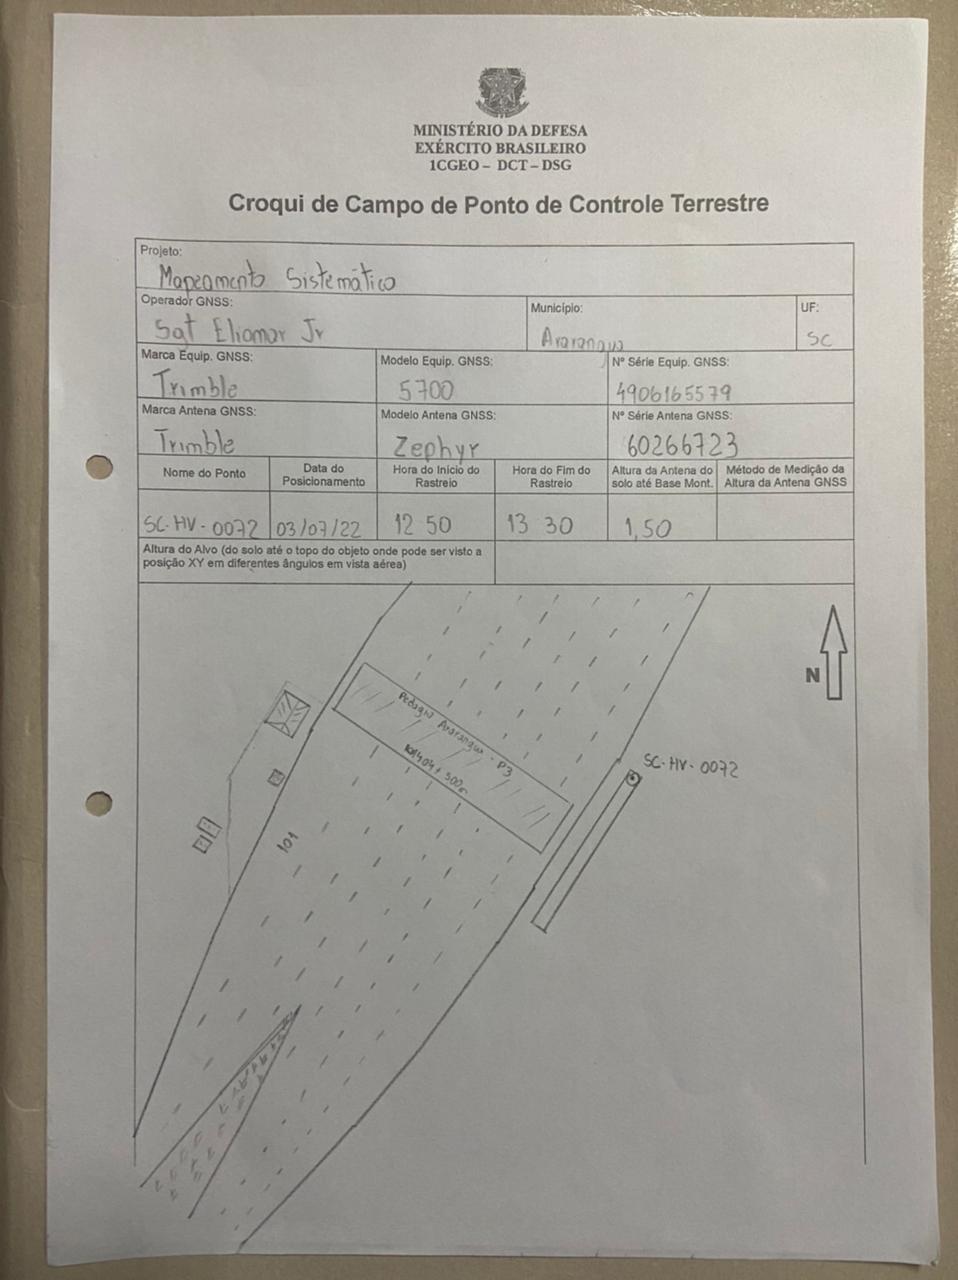 MINISTÉRIO DA DEFESA
EXÉRCITO BRASILEIRO
1CGEO – DCT – DSG
Croqui de Campo de Ponto de Controle Terrestre
Projeto:
Mapeamento Sistemático
Operador GNSS:
Sgt Eliomar Jr
Município:
Araranguá
UF:
SC
Marca Equip. GNSS:
Trimble
Modelo Equip. GNSS:
5700
Nº Série Equip. GNSS:
4906165579
Marca Antena GNSS:
Trimble
Modelo Antena GNSS:
Zephyr
Nº Série Antena GNSS:
60266723
Nome do Ponto
Data do
Posicionamento
Hora do Início do
Rastreio
Hora do Fim do
Rastreio
Altura da Antena do
solo até Base Mont.
Método de Medição da
Altura da Antena GNSS
SC-HV-0072
03/07/22
12 50
13 30
1,50
Altura do Alvo (do solo até o topo do objeto onde pode ser visto a
posição XY em diferentes ângulos em vista aérea)
N
Pedagio Ararangua - P3
SC-HV-0072
101